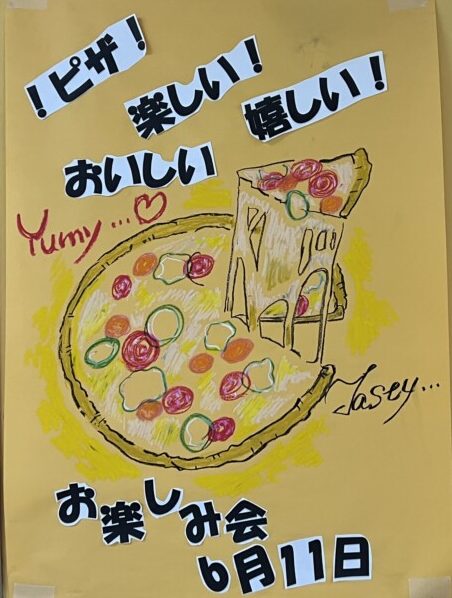 ！ピザ！
楽しい！
嬉しい！
おいしい
Yumy...♡
Tasey...
お楽しみ会
6月11日